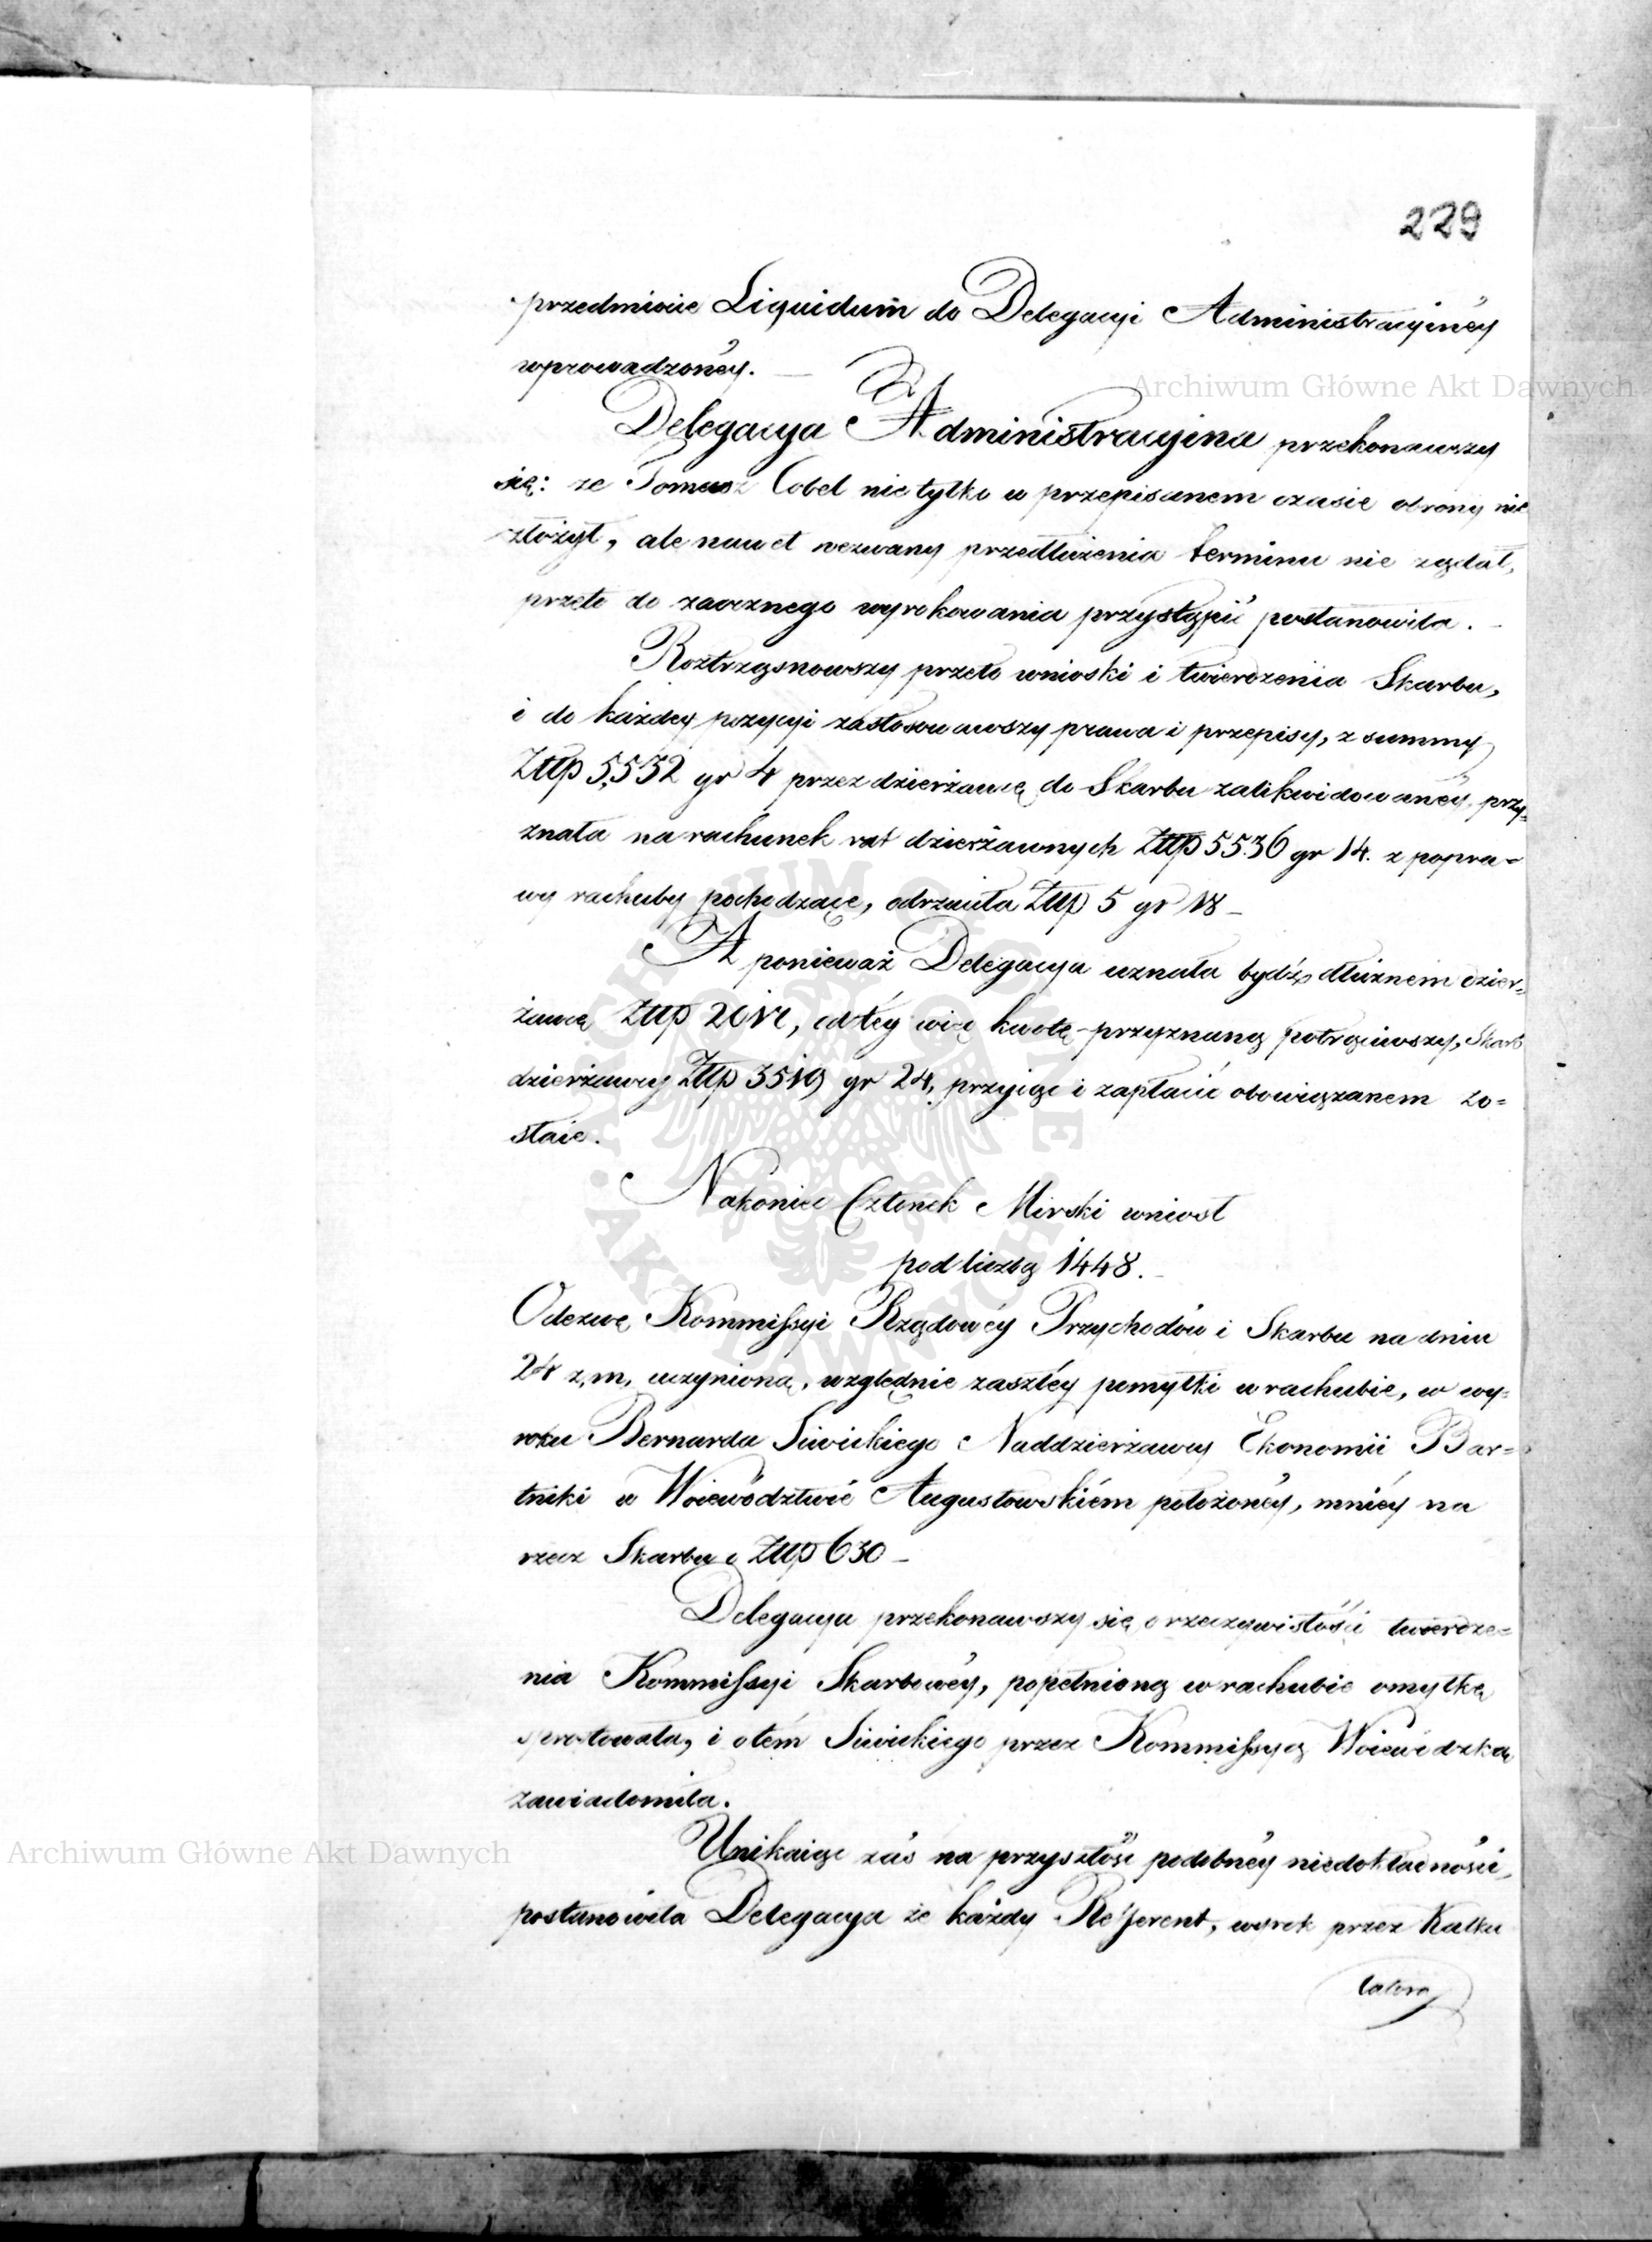 229
przedmiocie Liquidum do Delegacyi Administracyinéy
wprowadzonéy. —
Delegacya Administracyina przekonawszy
się: że Tomasz Cobel nie tylko w przepisanem czasie obrony nie
złożył, ale nawet wezwany przedłużenia terminu nie żądał,
przeto do zaocznego wyrokowania przystąpić postanowiła. —
Roztrząsnowszy przeto wnioski i twierdzenia Skarbu,
i do każdey pozycyi zastosowawszy prawa i przepisy, z summy
Złłp 5,532 gr 4 przez dzierżawcę do Skarbu zalikwidowanéy, przy=
znała na rachunek rat dzierżawnych Złłp 5536 gr 14. z popra=
wy rachuby pochodzące, odrzuciła Złłp 5 gr 18 —
A ponieważ Delegacya uznała bydź dłużnem dzier=
żawcę Złłp, od téy więc kwotę przyznaną potrąciwszy, Skarb
dzierżawcy Złłp 3519 gr 24, przyiąć i zapłacić obowiązanem zo=
staie.
Nakoniec Członek Mirski wniosł
pod liczbą 1448. —
Odezwę Kommissyi Rządowéy Przychodów i Skarbu na dniu
24 z, m, uczynioną, względnie zaszłéy pomyłki w rachubie, w wy=
roku Bernarda Siwickiego Naddzierżawcy Ekonomii Bar=
tniki w Woiewództwie Augustowskiém położonéy, mniéy na
rzecz Skarbu o Złłp 630 —
Delegacya przekonawszy się o rzeczywistości twierdze=
nia Kommissyi Skarbowéy, popełnioną w rachubie omyłkę
sprostowała, i o tém Siwickiego przez Kommissyą Woiewódzką
zawiadomiła.
Unikaiąc zaś na przyszłość podobnéy niedokładności,
postanowiła Delegacya że każdy Refferent, wyrok przez Kalku
latora
Archiwum Główne Akt Dawnych
Archiwum Główne Akt Dawnych